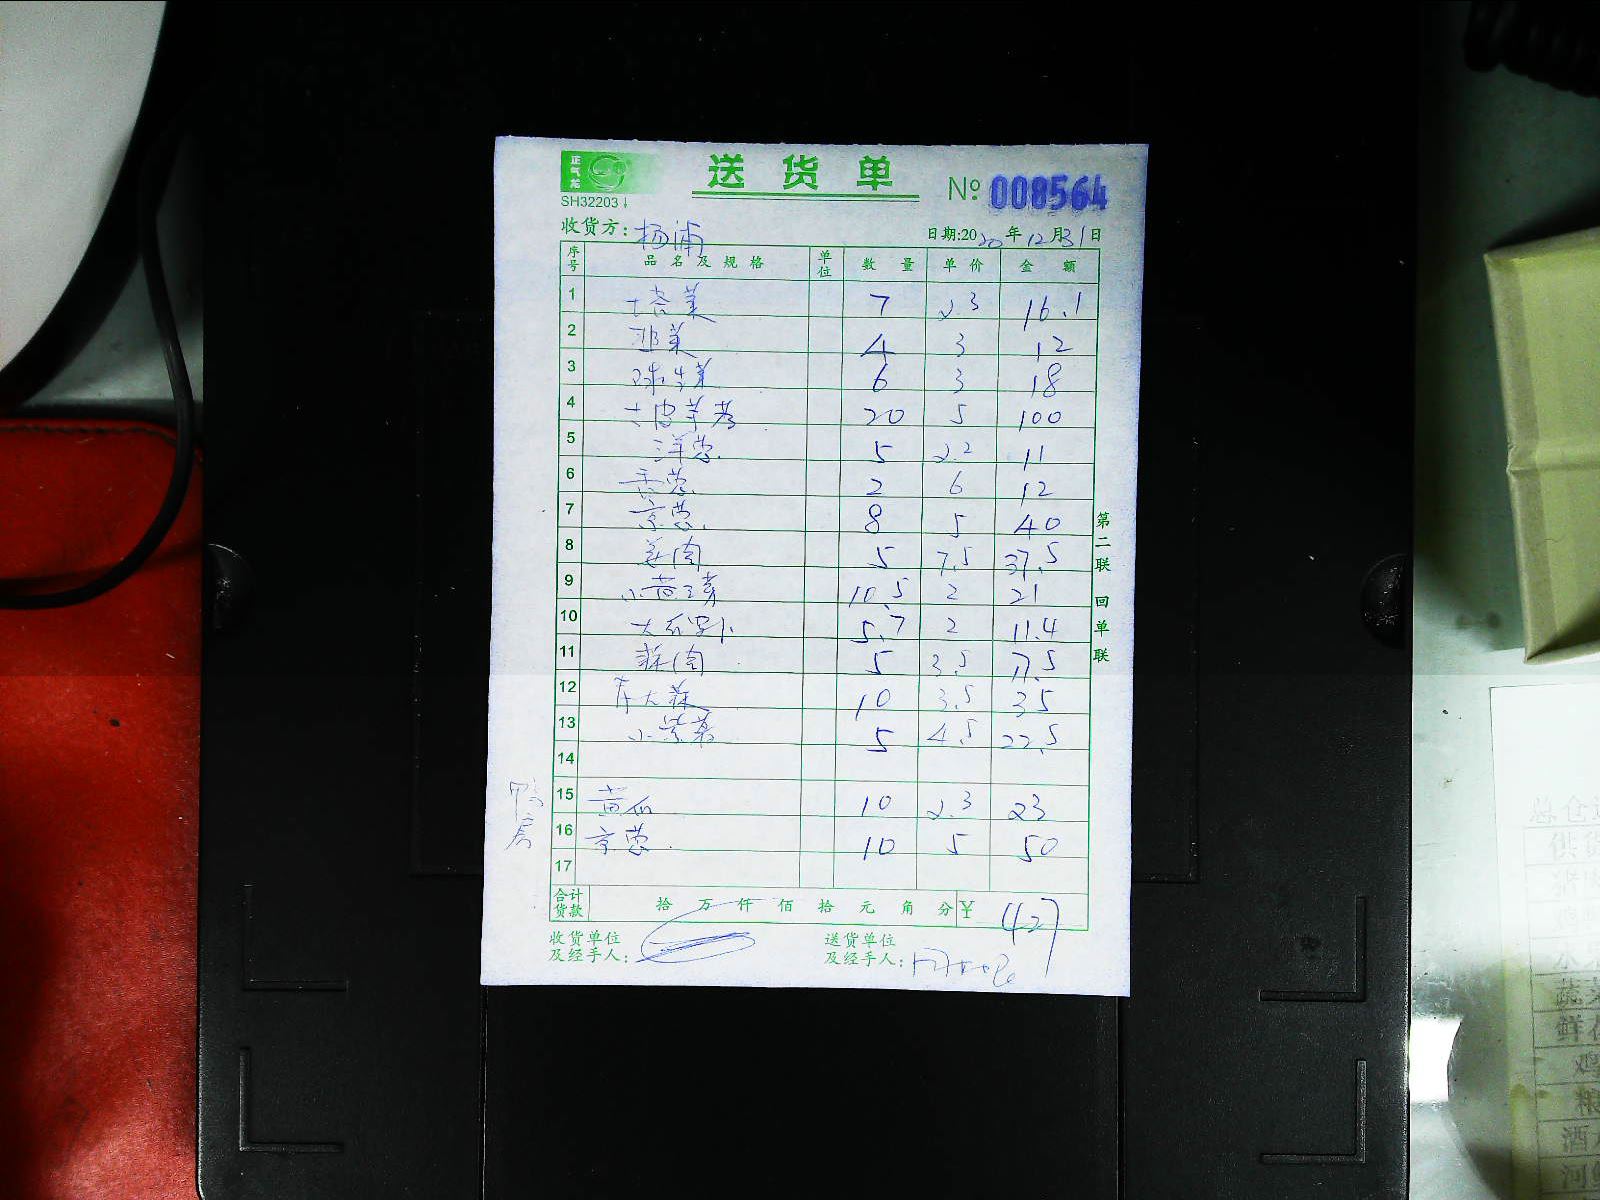 正气龙
送货单
No. 008564
SH32203
收货方: 杨浦
日期:2020年12月31日
序号 品名及规格 单位 数量 单价 金额
1 塔菜 7 2.3 16.1
2 韭菜 4 3 12
3 球生菜 6 3 18
4 土皮羊芬 20 5 100
5 洋葱 5 2.2 11
6 香葱 2 6 12
7 京葱 8 5 40
8 姜肉 5 7.5 37.5
9 小黄豆芽 10.5 2 21
10 大瓜 5.7 2 11.4
11 蒜肉 5 3.5 17.5
12 大蒜 10 3.5 35
13 小紫茄 5 4.5 22.5
14
15 黄瓜 10 2.3 23
16 京葱 10 5 50
17
鸭房
合计货款 拾万仟佰拾元角分 ¥ 427
收货单位及经手人:
送货单位及经手人:
第二联 回单联
总仓
供货
蔬菜
鲜
鸡
粮
酒
河